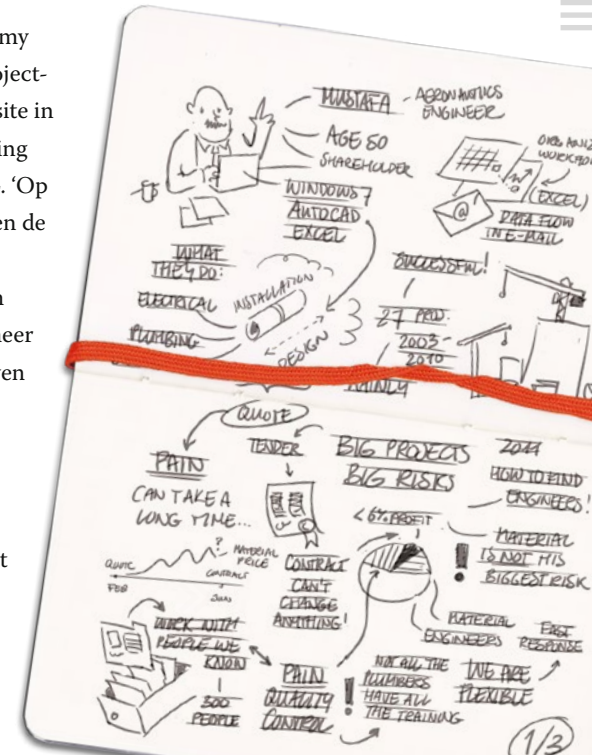 my
oject-
site in
ing
. 'Op
en de
n
neer
ven
t
MUSTAFA - AERONAUTICS
ENGINEER
AGE 50
SHAREHOLDER
WINDOWS 7
AUTOCAD
EXCEL
WHAT
THEY DO:
ELECTRICAL
PLUMBING
INSTALLATION
DESIGN
WORKFLOW
(EXCEL)
@
DATA FLOW
IN E-MAIL
SUCCESSFUL!
27 PROJ.
2003-
2010
MAINLY
QUOTE
PAIN
CAN TAKE A
LONG TIME...
TENDER
BIG PROJECTS
BIG RISKS
2011
HOW TO FIND
ENGINEERS!
< 6% PROFIT
MATERIAL
IS NOT HIS
BIGGEST RISK
!
QUOTE
FEB
?
MATERIAL
PRICE
CONTRACT
JAN
CONTRACT
CAN'T
CHANGE
ANYTHING!
MATERIAL
ENGINEERS
FAST
RESPONSE
WORK WITH
PEOPLE WE
KNOW
300
PEOPLE
PAIN
QUALITY
CONTROL
!
NOT ALL THE
PLUMBERS
HAVE ALL
THE TRAINING
WE ARE
FLEXIBLE
1/3